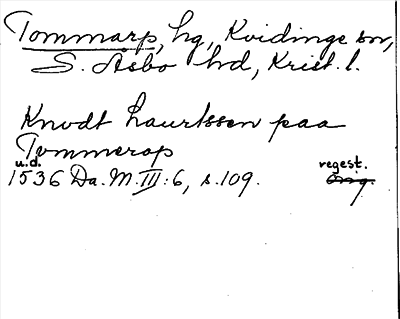 Tommarp, hg, Kvidinge sn,
S. Åsbo hd, Krist. l.
Knvdt Laurtssen paa
Tommerop
u.d.
1536 Da. M. III: 6, s. 109. regest.
Orig.